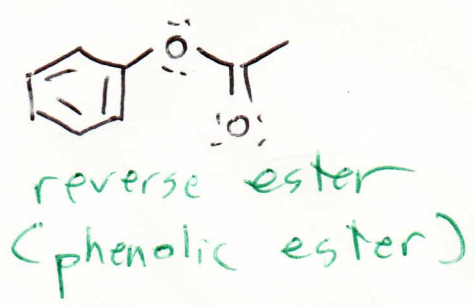 O
O
reverse ester
(phenolic ester)